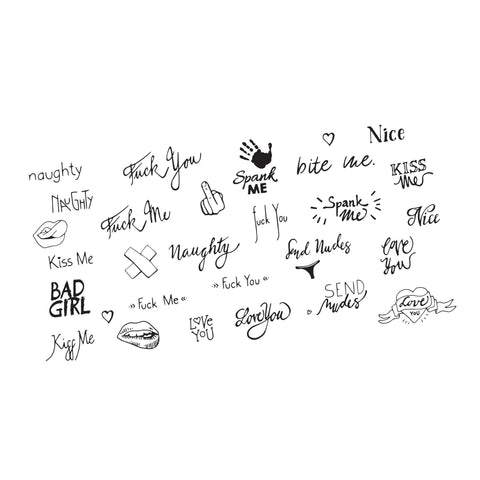 Nice
Fuck You
Spank
ME
bite me.
KISS
Me
naughty
NAUGHTY
Fuck Me
fuck You
Spank
Me
Nice
Kiss Me
Naughty
Send Nudes
Love
You
BAD
GIRL
» Fuck Me «
» Fuck You «
SEND
nudes
Kiss Me
LOVE
YOU
Love You
Love
YOU